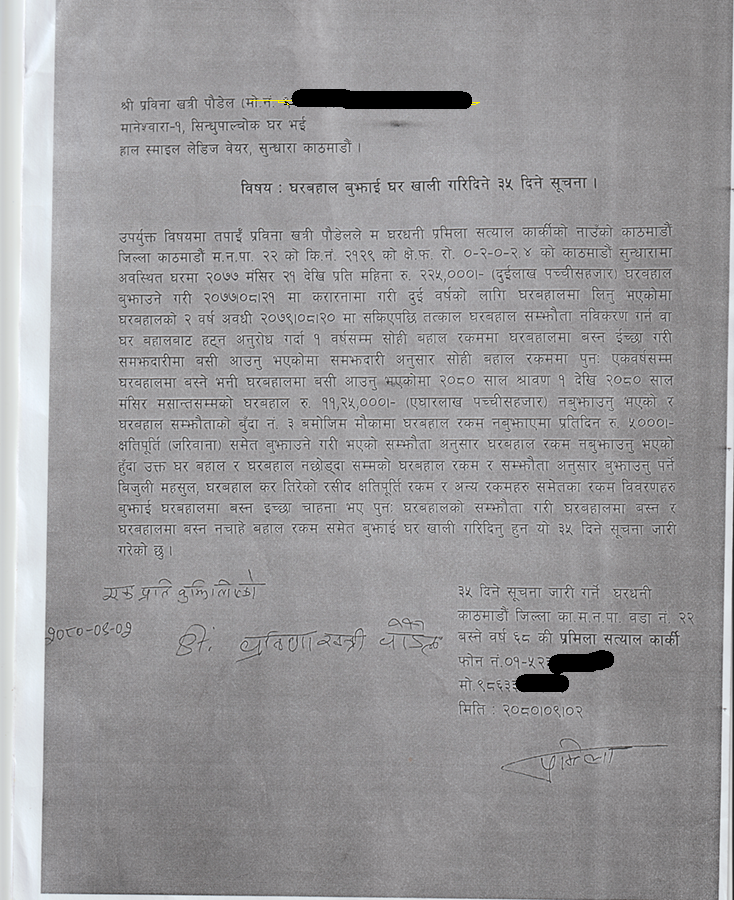 श्री प्रविना खत्री पौडेल (मो.नं.
मानेश्वारा-१, सिन्धुपाल्चोक घर भई
हाल स्माइल लेडिज वेयर, सुन्धारा काठमाडौं ।
विषय : घरबहाल बुझाई घर खाली गरिदिने ३५ दिने सूचना ।
उपर्युक्त विषयमा तपाईं प्रविना खत्री पौडेलले म घरधनी प्रमिला सत्याल कार्कीको नाउँको काठमाडौं
जिल्ला काठमाडौं म.न.पा. २२ को कि.नं. २१२९ को क्षे.फ. रो. ०-२-०-२.४ को काठमाडौं सुन्धारामा
अवस्थित घरमा २०७७ मंसिर २१ देखि प्रति महिना रु. २२५,०००।- (दुईलाख पच्चीसहजार) घरबहाल
बुझाउने गरी २०७७।०८।२१ मा करारनामा गरी दुई वर्षको लागि घरबहालमा लिनु भएकोमा
घरबहालको २ वर्ष अवधी २०७९।०८।२० मा सकिएपछि तत्काल घरबहाल सम्झौता नविकरण गर्न वा
घर बहालबाट हट्न अनुरोध गर्दा १ वर्षसम्म सोही बहाल रकममा घरबहालमा बस्न ईच्छा गरी
समझदारीमा बसी आउनु भएकोमा समझदारी अनुसार सोही बहाल रकममा पुनः एकवर्षसम्म
घरबहालमा बस्ने भनी घरबहालमा बसी आउनु भएकोमा २०८० साल श्रावण १ देखि २०८० साल
मंसिर मसान्तसम्मको घरबहाल रु. ११,२५,०००।- (एघारलाख पच्चीसहजार) नबुझाउनु भएको र
घरबहाल सम्झौताको बुँदा नं. ३ बमोजिम मौकामा घरबहाल रकम नबुझाएमा प्रतिदिन रु. ५०००।-
क्षतिपूर्ति (जरिवाना) समेत बुझाउने गरी भएको सम्झौता अनुसार घरबहाल रकम नबुझाउनु भएको
हुँदा उक्त घर बहाल र घरबहाल नछोड्दा सम्मको घरबहाल रकम र सम्झौता अनुसार बुझाउनु पर्ने
बिजुली महसुल, घरबहाल कर तिरेको रसीद क्षतिपूर्ति रकम र अन्य रकमहरु समेतका रकम विवरणहरु
बुझाई घरबहालमा बस्न इच्छा चाहना भए पुनः घरबहालको सम्झौता गरी घरबहालमा बस्न र
घरबहालमा बस्न नचाहे बहाल रकम समेत बुझाई घर खाली गरिदिनु हुन यो ३५ दिने सूचना जारी
गरेको छु ।
एक प्रति बुझिलिएको
२०८०-०९-०२
प्रविणा खत्री पौडेल
३५ दिने सूचना जारी गर्ने घरधनी
काठमाडौं जिल्ला का.म.न.पा. वडा नं. २२
बस्ने वर्ष ६८ की प्रमिला सत्याल कार्की
फोन नं.०१-५२
मो.९८६३
मिति : २०८०।०९।०२
प्रमिला